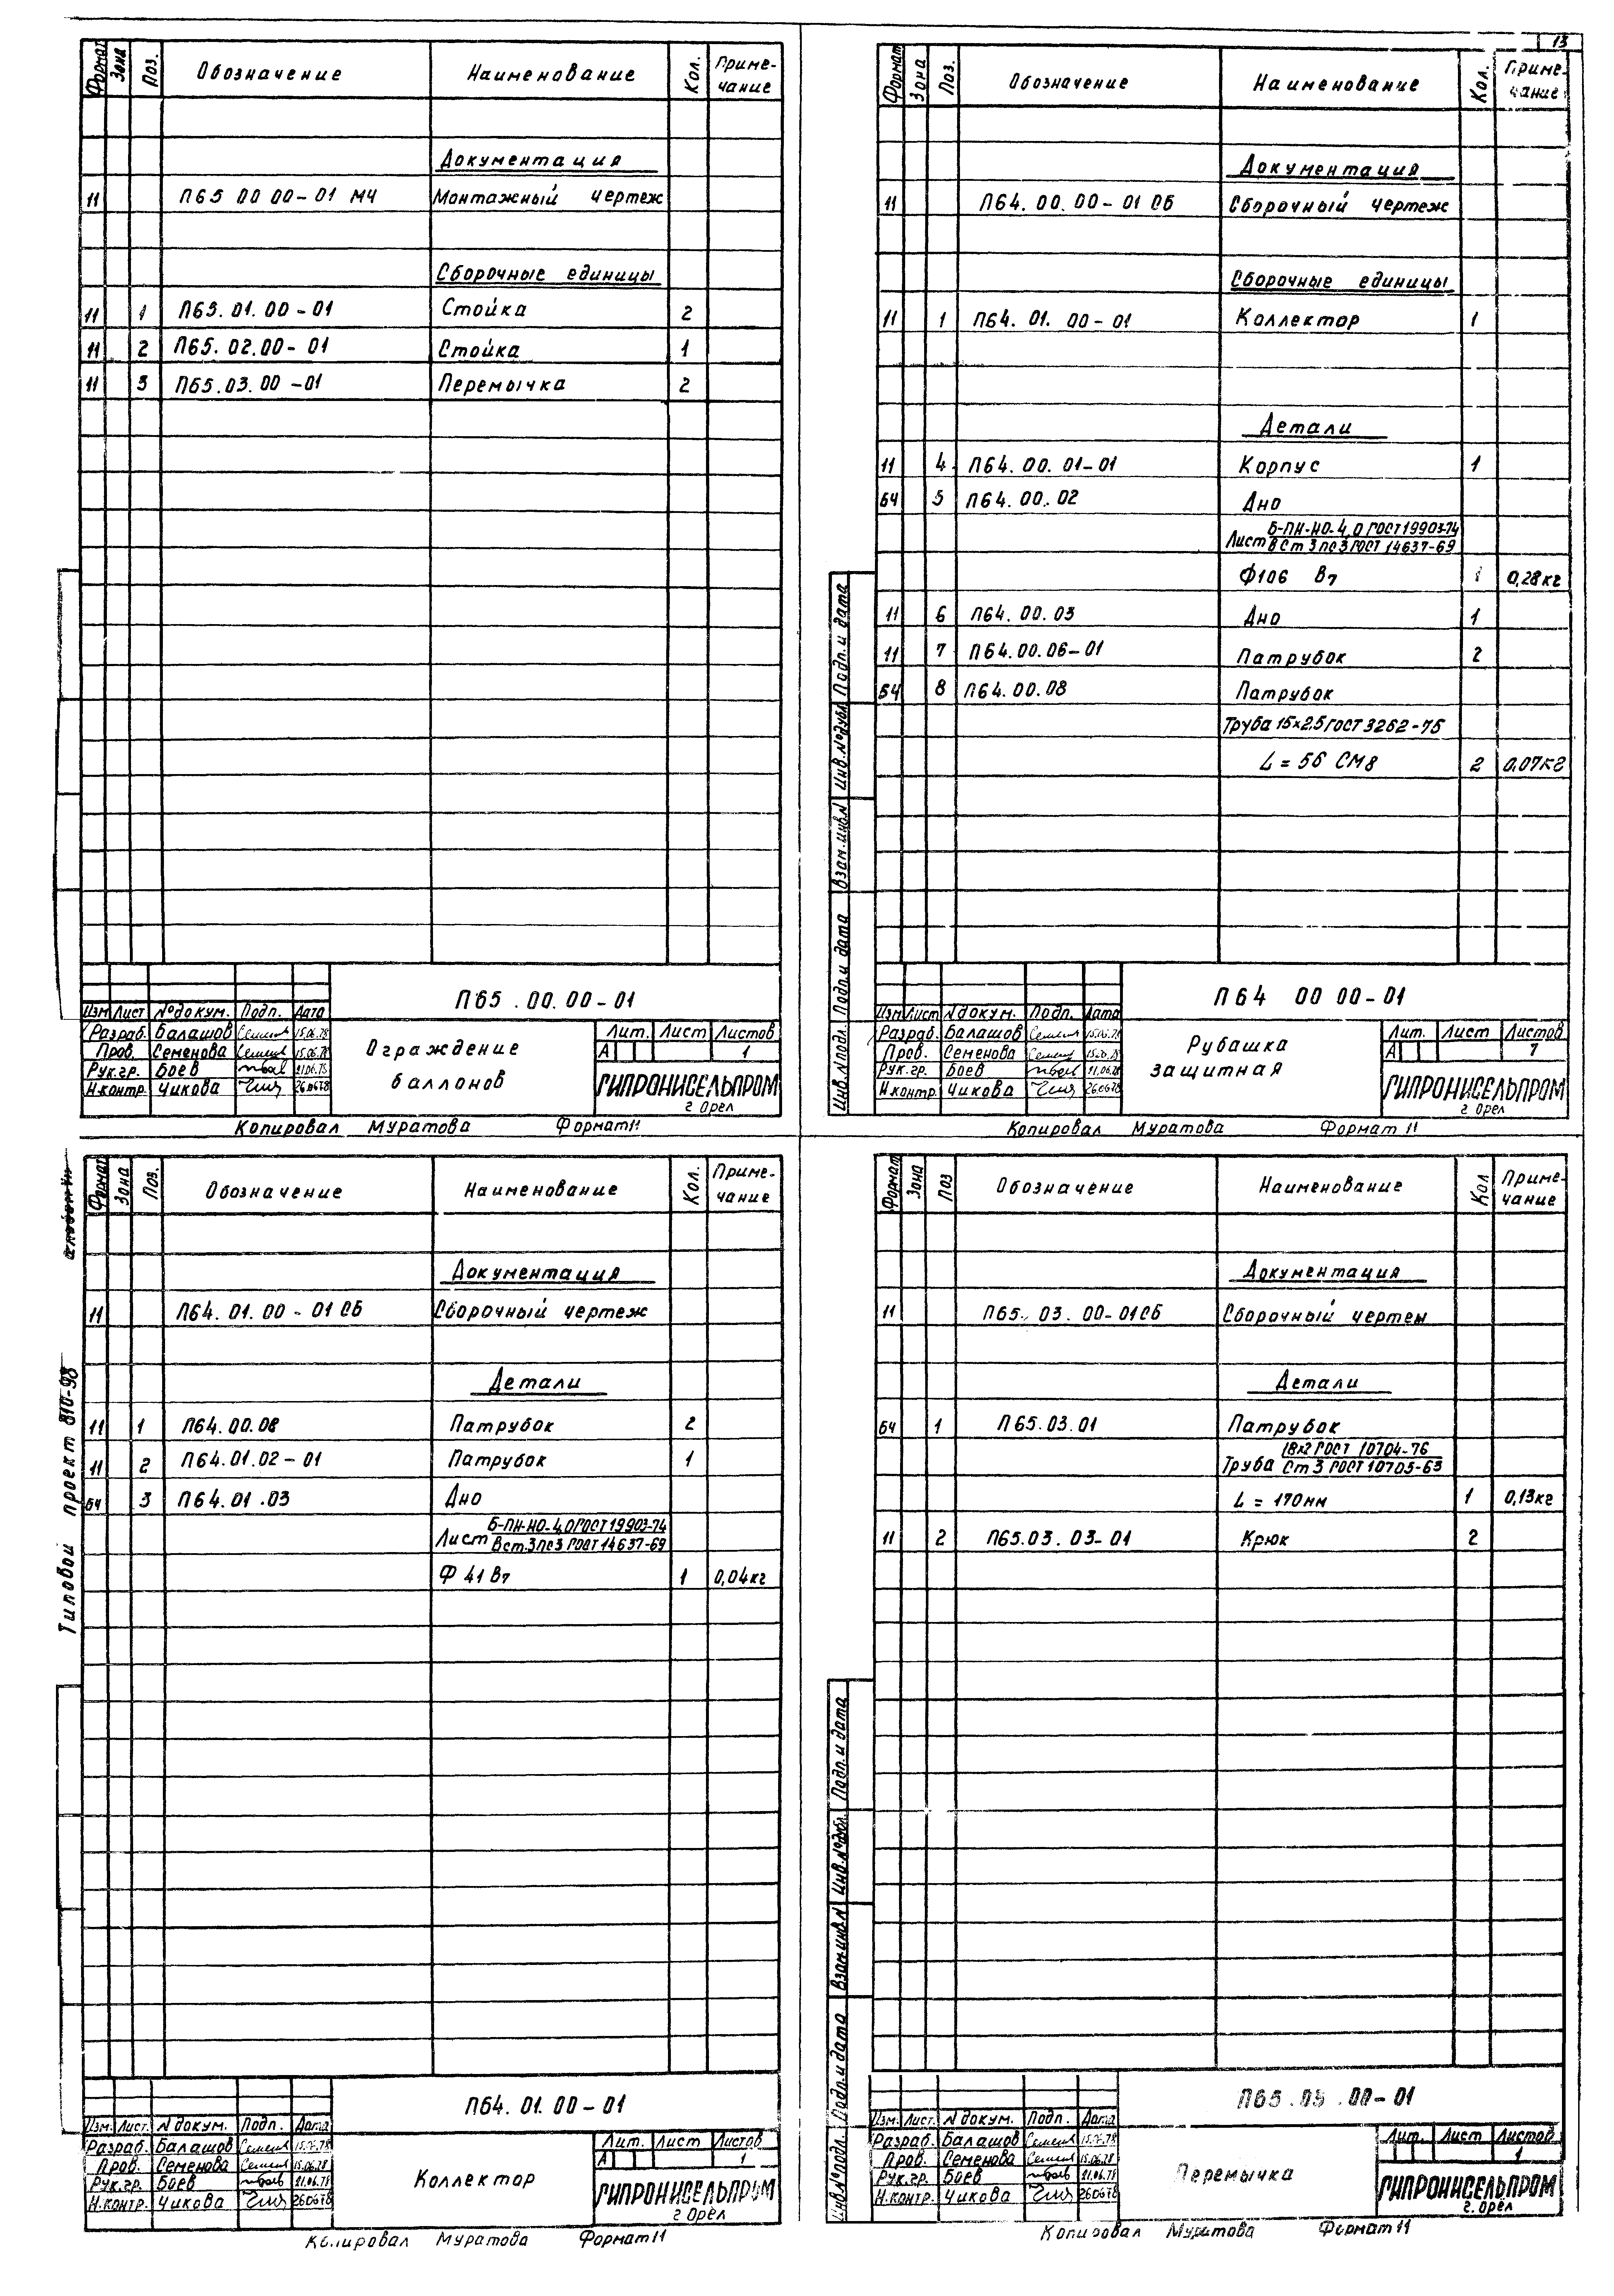 13
Формат Зона Поз. Обозначение Наименование Кол. Приме-
чание
Документация
11 П65 00 00-01 МЧ Монтажный чертеж
Сборочные единицы
11 1 П65.01.00-01 Стойка 2
11 2 П65.02.00-01 Стойка 1
11 3 П65.03.00-01 Перемычка 2
П65.00.00-01
Изм Лист № докум. Подп. Дата
Разраб. Балашов 15.06.78
Пров. Семенова 15.06.78
Рук.гр. Боев 21.06.78
Н.контр. Чикова 26.06.78
Ограждение
баллонов
Лит. Лист Листов
А 1
ГИПРОНИСЕЛЬПРОМ
г Орел
Копировал Муратова Формат 11
Формат Зона Поз. Обозначение Наименование Кол. Приме-
чание
Документация
11 П64.00.00-01 СБ Сборочный чертеж
Сборочные единицы
11 1 П64.01.00-01 Коллектор 1
Детали
11 4 П64.00.01-01 Корпус 1
БЧ 5 П64.00.02 Дно
Лист Б-ПН-НО-4,0 ГОСТ 19903-74
В Ст 3 пс 3 ГОСТ 14637-69
Ф106 В7 1 0,28кг
11 6 П64.00.03 Дно 1
11 7 П64.00.06-01 Патрубок 2
БЧ 8 П64.00.08 Патрубок
Труба 15х2,5 ГОСТ 3262-75
L = 56 СМ8 2 0,07кг
Подп. и дата
Инв. № дубл.
Взам. инв. №
Подп. и дата
Инв. № подл.
П64 00 00-01
Изм Лист № докум. Подп. Дата
Разраб. Балашов 15.06.78
Пров. Семенова 15.06.78
Рук.гр. Боев 21.06.78
Н.контр. Чикова 26.06.78
Рубашка
защитная
Лит. Лист Листов
А 7
ГИПРОНИСЕЛЬПРОМ
г Орел
Копировал Муратова Формат 11
Типовой проект 810-93
Формат Зона Поз. Обозначение Наименование Кол. Приме-
чание
Документация
11 П64.01.00-01 СБ Сборочный чертеж
Детали
11 1 П64.00.08 Патрубок 2
11 2 П64.01.02-01 Патрубок 1
БЧ 3 П64.01.03 Дно
Лист Б-ПН-НО-4,0 ГОСТ 19903-74
В ст.3 пс 3 ГОСТ 14637-69
Ф 41 В7 1 0,04кг
П64.01.00-01
Изм. Лист. № докум. Подп. Дата
Разраб. Балашов 15.06.78
Пров. Семенова 15.06.78
Рук.гр. Боев 21.06.78
Н.контр. Чикова 26.06.78
Коллектор
Лит. Лист Листов
А 1
ГИПРОНИСЕЛЬПРОМ
г Орел
Копировал Муратова Формат 11
Формат Зона Поз Обозначение Наименование Кол Приме-
чание
Документация
11 П65.03.00-01СБ Сборочный чертеж
Детали
БЧ 1 П65.03.01 Патрубок
Труба 18х2 ГОСТ 10704-76
Ст 3 ГОСТ 10705-63
L = 170мм 1 0,13кг
11 2 П65.03.03-01 Крюк 2
Подп. и дата
Инв. № дубл.
Взам. инв. №
Подп. и дата
Инв. № подл.
П65.03.00-01
Изм. Лист. № докум. Подп. Дата
Разраб. Балашов 15.06.78
Пров. Семенова 15.06.78
Рук.гр. Боев 21.06.78
Н.контр. Чикова 26.06.78
Перемычка
Лит. Лист Листов
1
ГИПРОНИСЕЛЬПРОМ
г. Орел
Копировал Муратова Формат 11